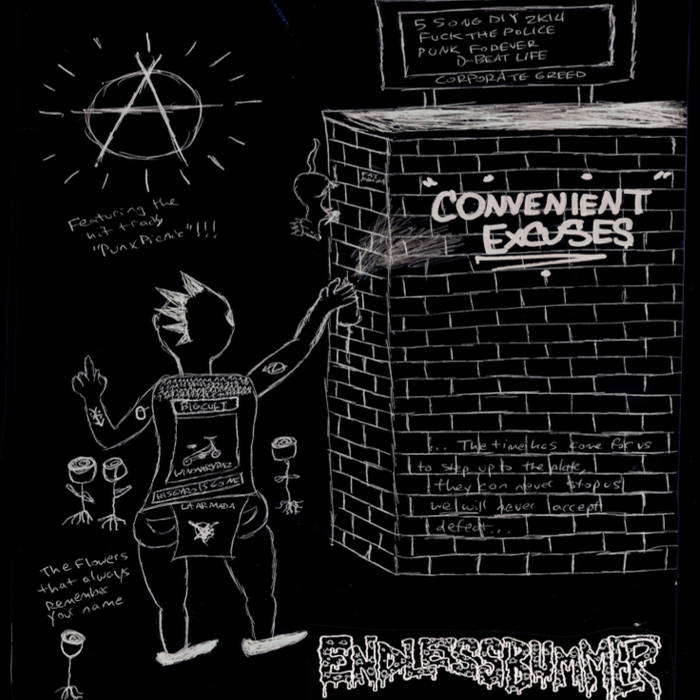 5 SONG DIY 2K14
FUCK THE POLICE
PUNK FODEVER
D-BEAT LIFE
CORPORATE GREED
Featuring the
hit track
"Punx Picnic"!!!
"CONVENIENT
EXCUSES"
BIGCULT
HIS GUARD IS GONE
LA ARMADA
... The time has come for us
to step up to the plate,
they can never stop us
we will never accept
defeat...
The Flowers
that always
Remember
your name
ENDLESSBUMMER